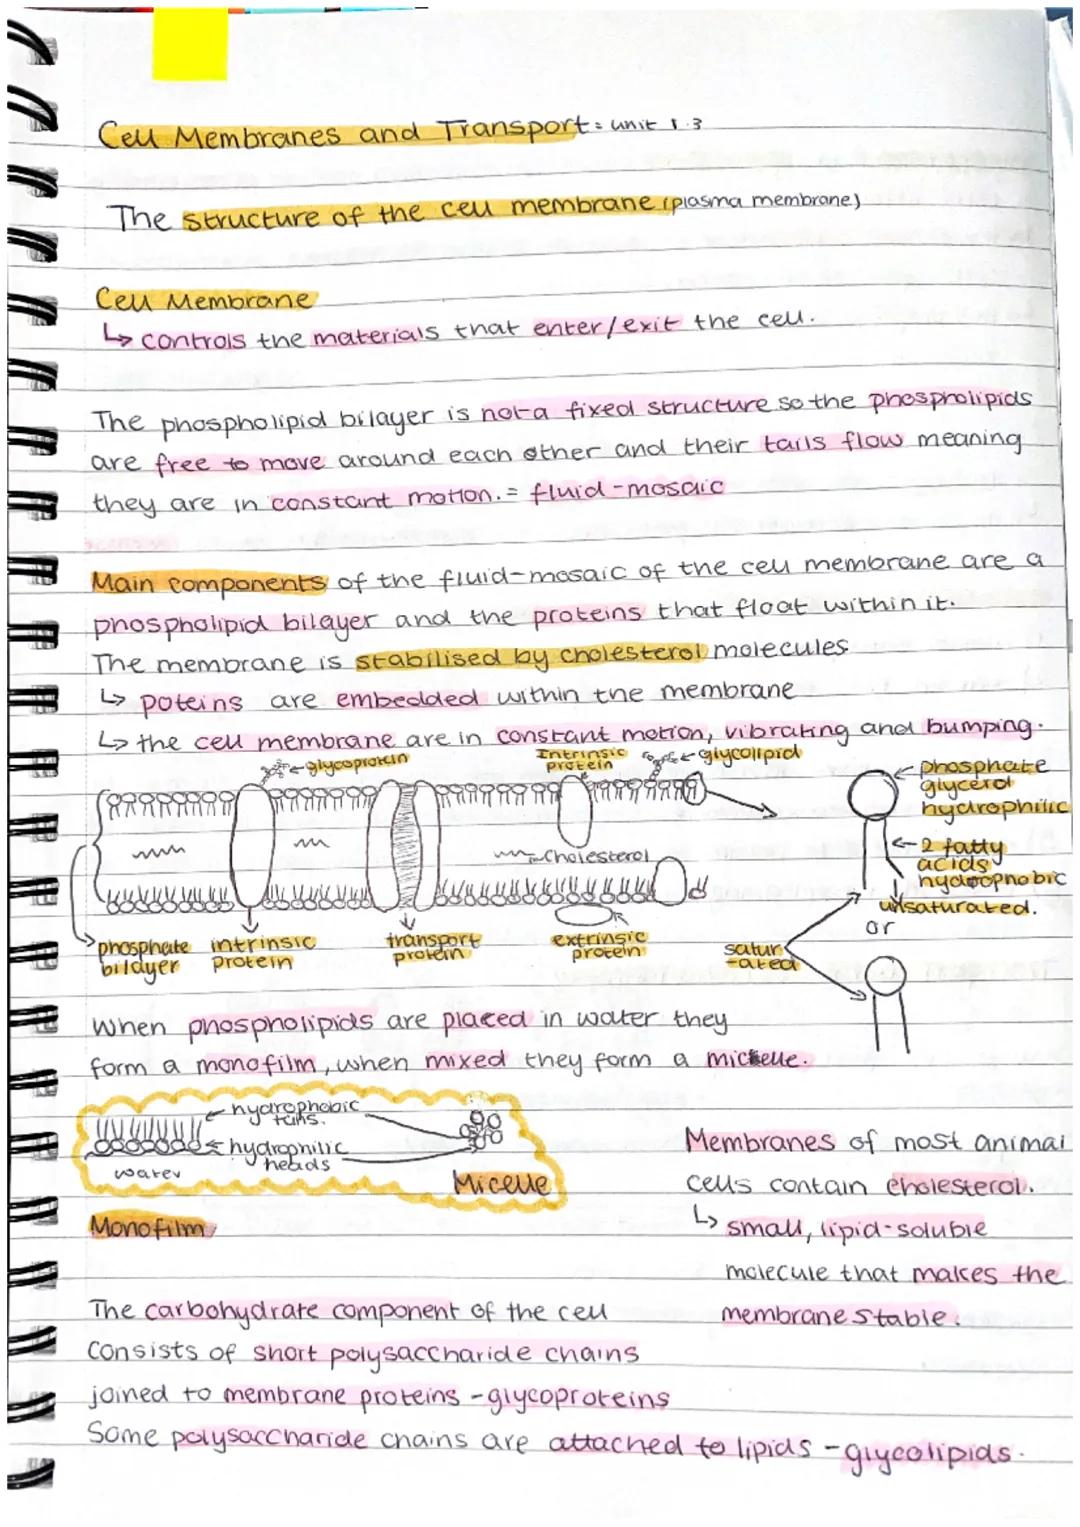 Cell Membranes and Transport: unit 1.3
The structure of the cell membrane (plasma membrane)
Cell Membrane
↳ controls the materials that enter/exit the cell.
The phospholipid bilayer is not a fixed structure so the phospholipids
are free to move around each other and their tails flow meaning
they are in constant motion. = fluid-mosaic
Main components of the fluid-mosaic of the cell membrane are a
phospholipid bilayer and the proteins that float within it.
The membrane is stabilised by cholesterol molecules
↳ poteins are embedded within the membrane
↳ the cell membrane are in constant motion, vibrating and bumping.
←glycoprotein
Intrinsic
protein
←glycolipid
←phosphate
glycerol
hydrophilic
←2 fatty
acids
hydrophobic
unsaturated.
or
Cholesterol
phosphate
bilayer
intrinsic
protein
transport
protein
extrinsic
protein
satur
-ated
When phospholipids are placed in water they
form a monofilm, when mixed they form a micelle.
hydrophobic
tails.
hydrophilic
heads
water
Micelle
Monofilm
Membranes of most animal
cells contain cholesterol.
↳ small, lipid-soluble
molecule that makes the
membrane stable.
The carbohydrate component of the cell
consists of short polysaccharide chains
joined to membrane proteins - glycoproteins
Some polysaccharide chains are attached to lipids - glycolipids.